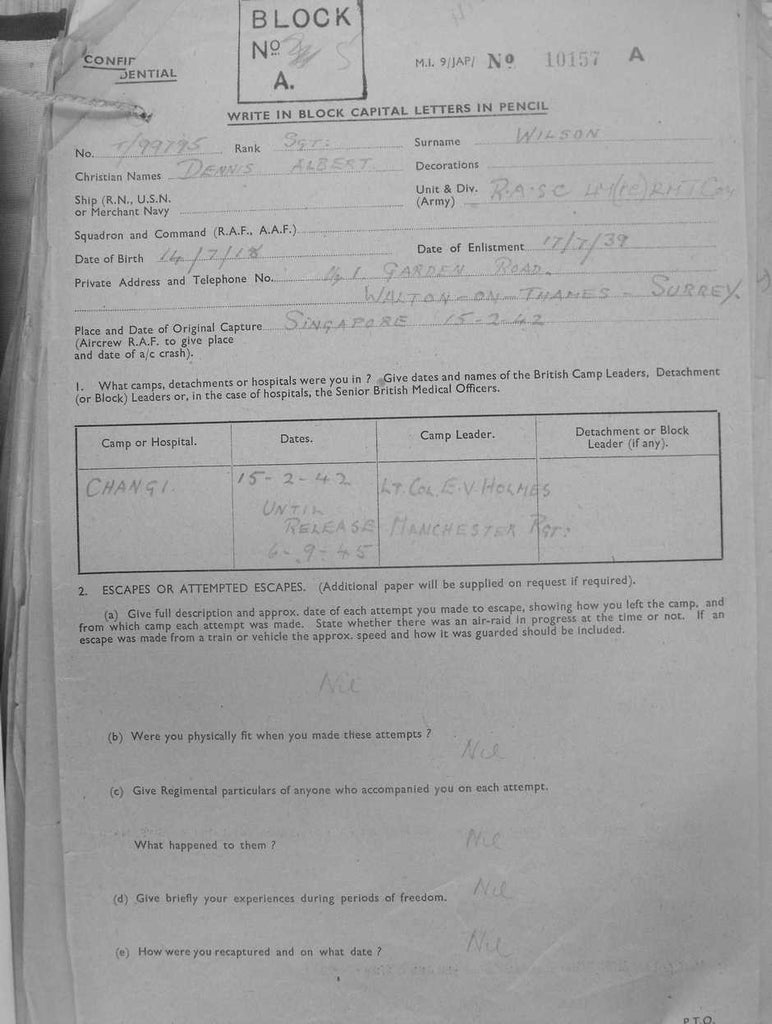 BLOCK
No. 5
A.
CONFIDENTIAL
M.I. 9/JAP/ No 10157 A
WRITE IN BLOCK CAPITAL LETTERS IN PENCIL
No. T/99795 Rank SGT: Surname WILSON
Christian Names DENNIS ALBERT Decorations
Ship (R.N., U.S.N. or Merchant Navy
Unit & Div. (Army) R.A.S.C RMT Coy
Squadron and Command (R.A.F., A.A.F.)
Date of Birth 14/7/18 Date of Enlistment 17/7/39
Private Address and Telephone No. 1 GARDEN ROAD.
WALTON-ON-THAMES - SURREY.
Place and Date of Original Capture SINGAPORE 15-2-42
(Aircrew R.A.F. to give place
and date of a/c crash).
1. What camps, detachments or hospitals were you in ? Give dates and names of the British Camp Leaders, Detachment
(or Block) Leaders or, in the case of hospitals, the Senior British Medical Officers.
Camp or Hospital. Dates. Camp Leader. Detachment or Block Leader (if any).
CHANGI. 15-2-42 LT. COL E.V. HOLMES
UNTIL
RELEASE MANCHESTER RGT:
6-9-45
2. ESCAPES OR ATTEMPTED ESCAPES. (Additional paper will be supplied on request if required).
(a) Give full description and approx. date of each attempt you made to escape, showing how you left the camp, and
from which camp each attempt was made. State whether there was an air-raid in progress at the time or not. If an
escape was made from a train or vehicle the approx. speed and how it was guarded should be included.
Nil
(b) Were you physically fit when you made these attempts ?
Nil
(c) Give Regimental particulars of anyone who accompanied you on each attempt.
What happened to them ? Nil
(d) Give briefly your experiences during periods of freedom. Nil
(e) How were you recaptured and on what date ? Nil
P.T.O.